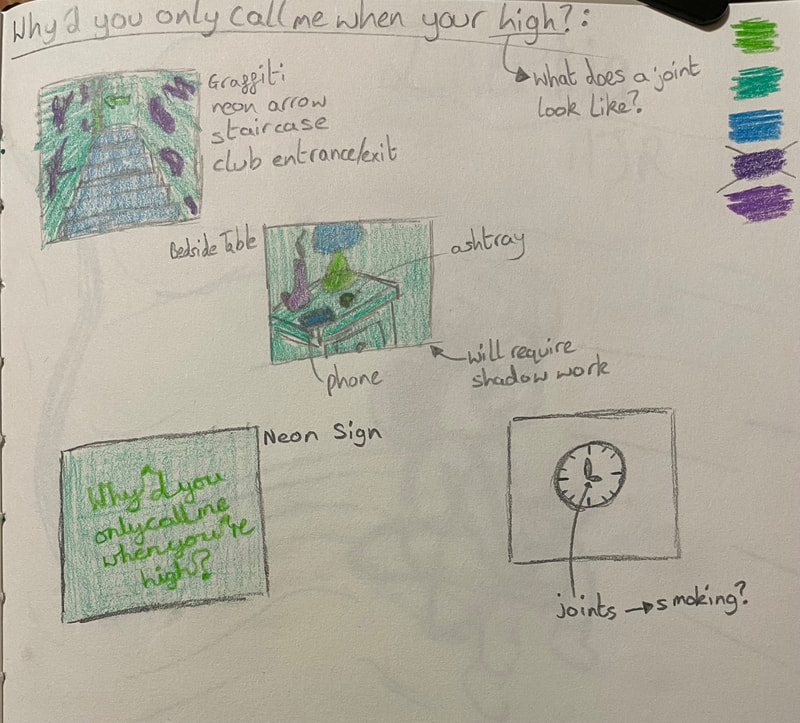 Why'd you only call me when your high?:
What does a joint
look like?
Graffiti
neon arrow
staircase
club entrance/exit
Bedside Table
ashtray
will require
shadow work
phone
Neon Sign
Why'd you
only call me
when you're
high?
joints → smoking?